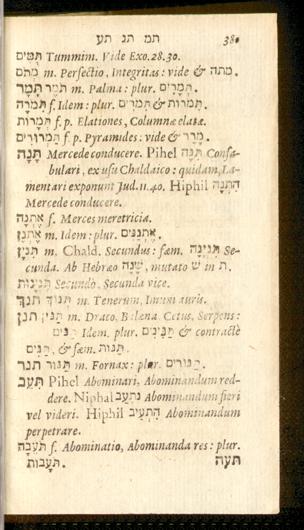 תמ תנ תע 381
תֻּמִּים Tummim. Vide Exo.28.30.
מְתֹם m. Perfectio, Integritas: vide & מתה.
תָּמָר תֹּמֶר m. Palma: plur. תְּמָרִים.
תִּמֹרָה f. Idem: plur. תִּמֹרִים & תִּמֹרוֹת.
תִּמְרוֹת f. p. Elationes, Columnæ elatæ.
תַּמְרוּרִים f. p. Pyramides: vide & מָרַר.
תָּנָה Mercede conducere. Pihel תִּנָּה Confa-
bulari, ex usu Chaldaico: quidam, La-
mentari exponunt Jud.11.40. Hiphil הִתְנָה
Mercede conducere.
אֶתְנָה f. Merces meretricia.
אֶתְנַן m. Idem: plur. אֶתְנַנִּים.
תִּנְיָן m. Chald. Secundus: fæm. תִּנְיָנָה Se-
cunda. Ab Hebræo שָׁנָה, mutato שׁ in ת.
תִּנְיָנוּת Secundò, Secunda vice.
תנך תְּנוּךְ m. Tenerum, Imum auris.
תנן תַּנִּין m. Draco, Balena, Cetus, Serpens:
תַּנִּים Idem. plur. תַּנִּינִים & contractè
תַּנִּים, & fæm. תַּנּוֹת.
תנר תַּנּוּר m. Fornax: plur. תַּנּוּרִים.
תָּעַב Pihel Abominari, Abominandum red-
dere. Niphal נִתְעַב Abominandum fieri
vel videri. Hiphil הִתְעִיב Abominandum
perpetrare.
תּוֹעֵבָה f. Abominatio, Abominanda res: plur.
תּוֹעֵבוֹת. תּעה